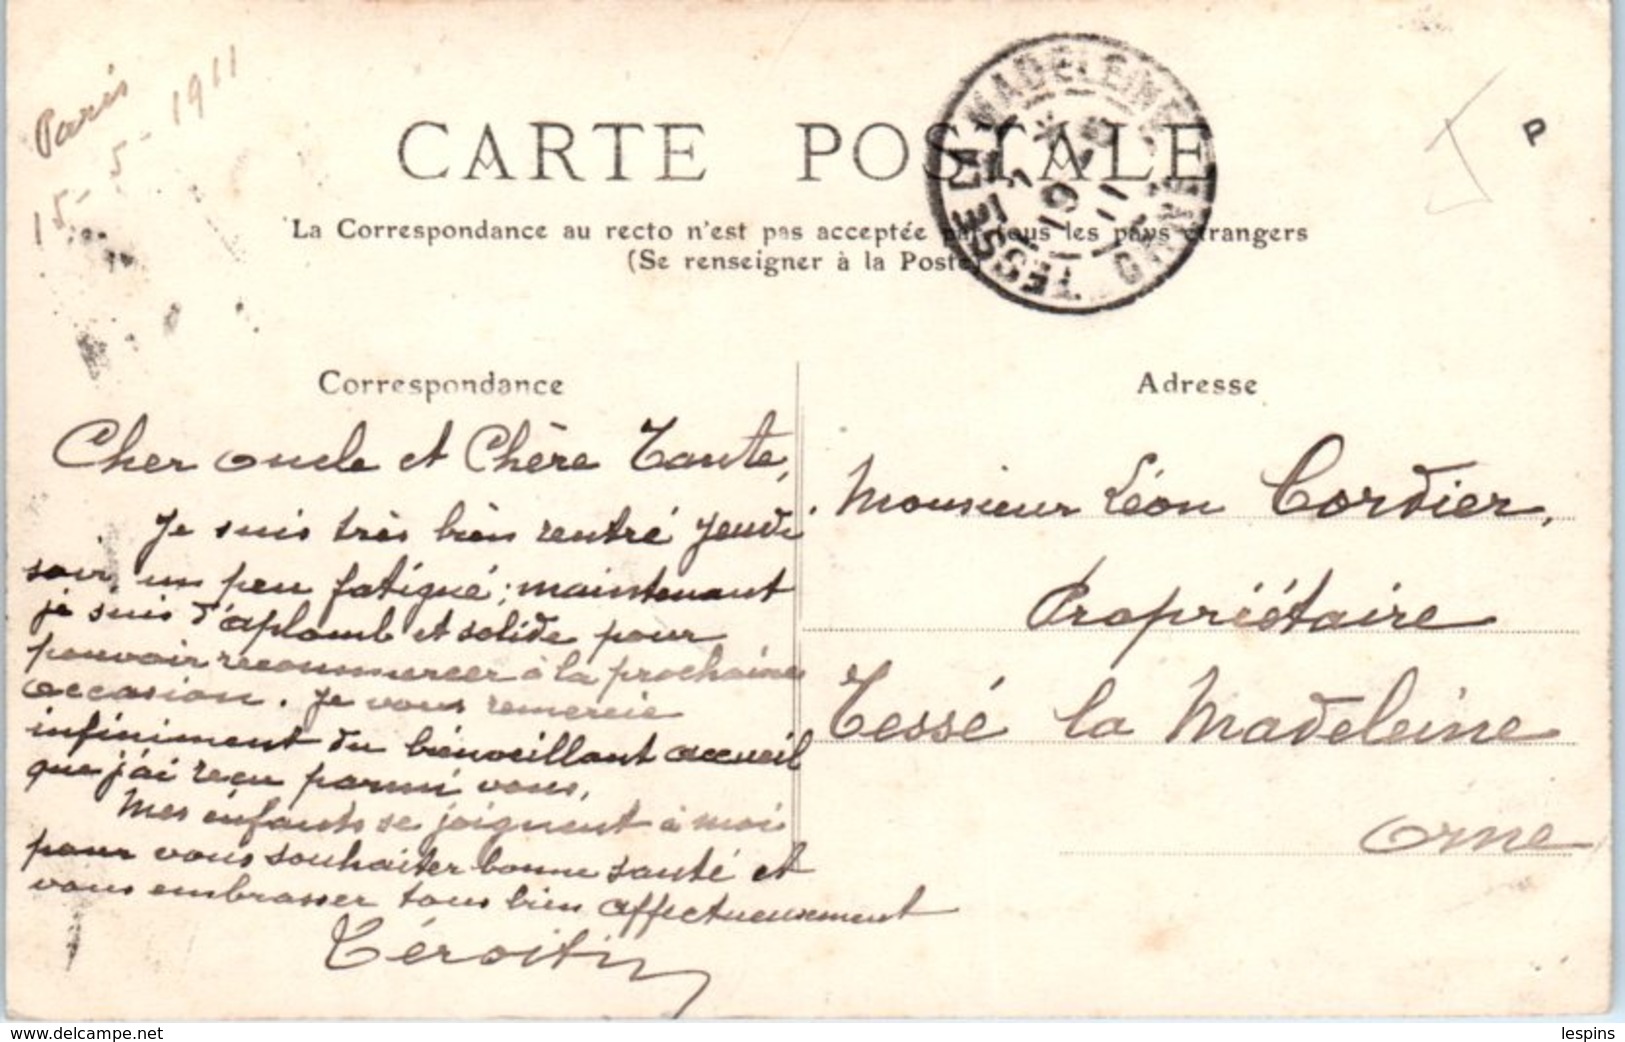 Paris
15-5-1911
CARTE POSTALE
La Correspondance au recto n'est pas acceptée par tous les pays étrangers
(Se renseigner à la Poste)
TESSÉ LA MADELEINE
ORNE
P
Correspondance
Cher oncle et Chère Tante,
Je suis très bien rentré jeudi
soir, un peu fatigué ; maintenant
je suis d'aplomb et solide pour
pouvoir recommencer à la prochaine
occasion. Je vous remercie
infiniment du bienveillant accueil
que j'ai reçu parmi vous.
Mes enfants se joignent à moi
pour vous souhaiter bonne santé et
vous embrasser tous bien affectueusement
Adresse
Monsieur Léon Cordier,
Propriétaire
Tessé la Madeleine
Orne
www.delcampe.net
lespins